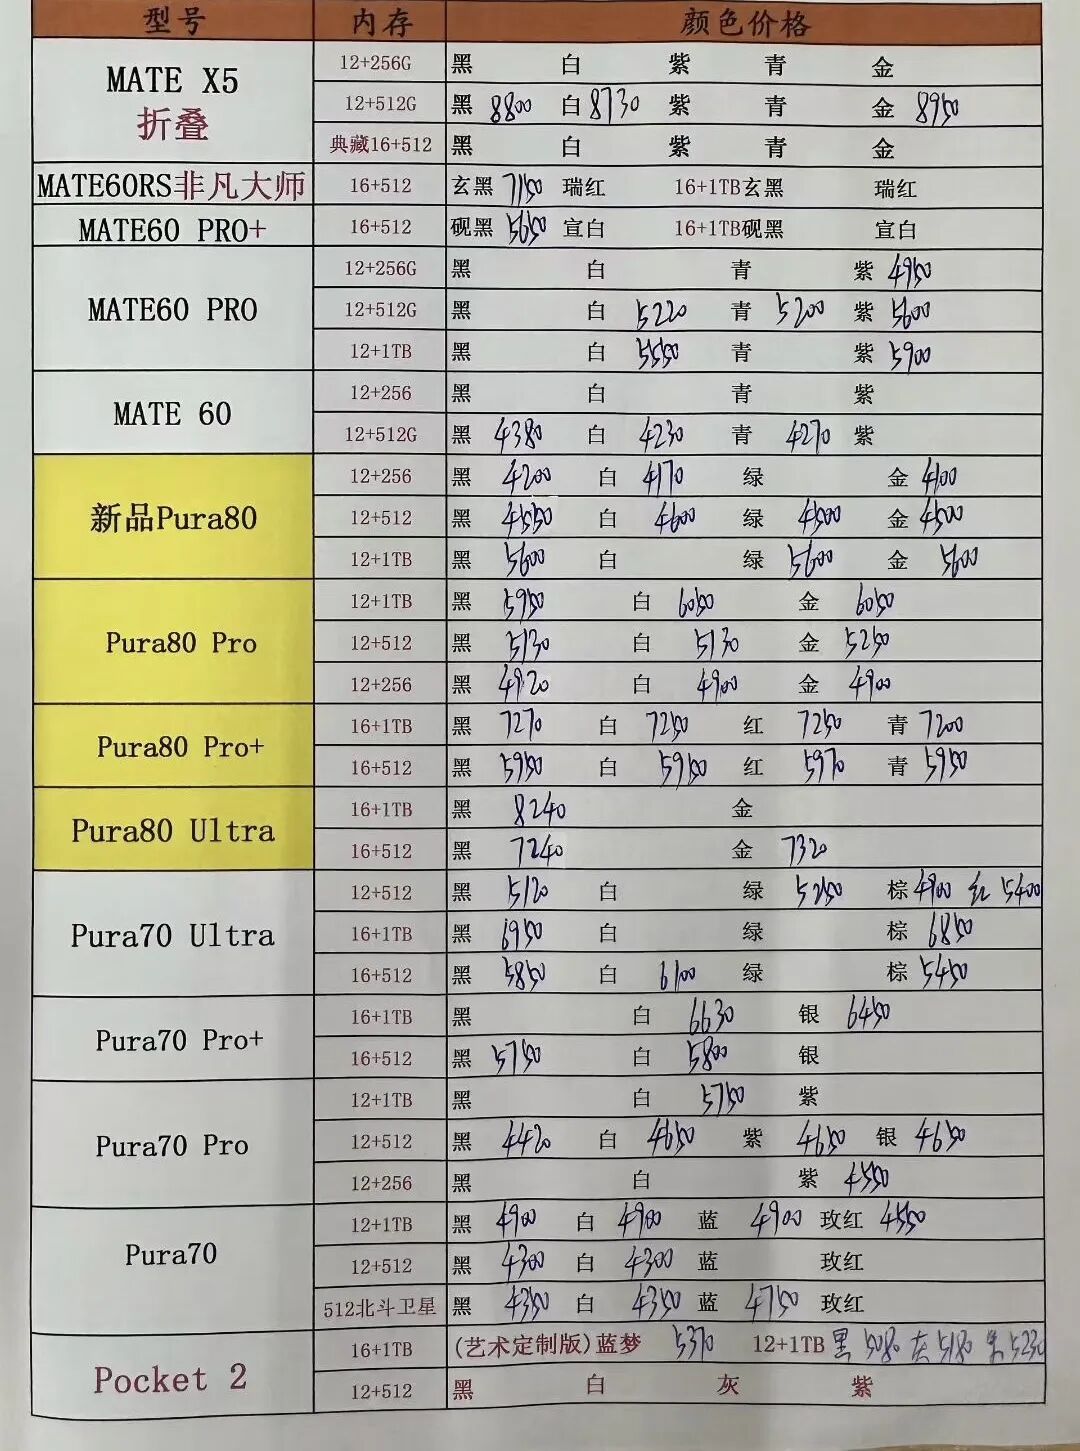 型号 内存 颜色价格
MATE X5 折叠 12+256G 黑 白 紫 青 金
12+512G 黑 8800 白 8730 紫 青 金 8950
典藏16+512 黑 白 紫 青 金
MATE60RS非凡大师 16+512 玄黑 7150 瑞红 16+1TB玄黑 瑞红
MATE60 PRO+ 16+512 砚黑 5650 宣白 16+1TB砚黑 宣白
MATE60 PRO 12+256G 黑 白 青 紫 4950
12+512G 黑 白 5220 青 5200 紫 5600
12+1TB 黑 白 5550 青 紫 5900
MATE 60 12+256 黑 白 青 紫
12+512G 黑 4380 白 4230 青 4270 紫
新品Pura80 12+256 黑 4200 白 4170 绿 金 4100
12+512 黑 4550 白 4600 绿 4500 金 4500
12+1TB 黑 5600 白 绿 5600 金 5600
Pura80 Pro 12+1TB 黑 5950 白 6050 金 6050
12+512 黑 5130 白 5130 金 5250
12+256 黑 4920 白 4900 金 4900
Pura80 Pro+ 16+1TB 黑 7270 白 7250 红 7250 青 7200
16+512 黑 5950 白 5950 红 5970 青 5950
Pura80 Ultra 16+1TB 黑 8240 金
16+512 黑 7240 金 7320
Pura70 Ultra 12+512 黑 5120 白 绿 5250 棕 4900 红 5400
16+1TB 黑 6950 白 绿 棕 6850
16+512 黑 5850 白 6100 绿 棕 5450
Pura70 Pro+ 16+1TB 黑 白 6630 银 6450
16+512 黑 5750 白 5800 银
Pura70 Pro 12+1TB 黑 白 5750 紫
12+512 黑 4420 白 4650 紫 4650 银 4650
12+256 黑 白 紫 4550
Pura70 12+1TB 黑 4900 白 4900 蓝 4900 玫红 4550
12+512 黑 4300 白 4300 蓝 玫红
512北斗卫星 黑 4350 白 4350 蓝 4750 玫红
Pocket 2 16+1TB (艺术定制版)蓝梦 5370 12+1TB 黑 5080 灰 5180 5230
12+512 黑 白 灰 紫